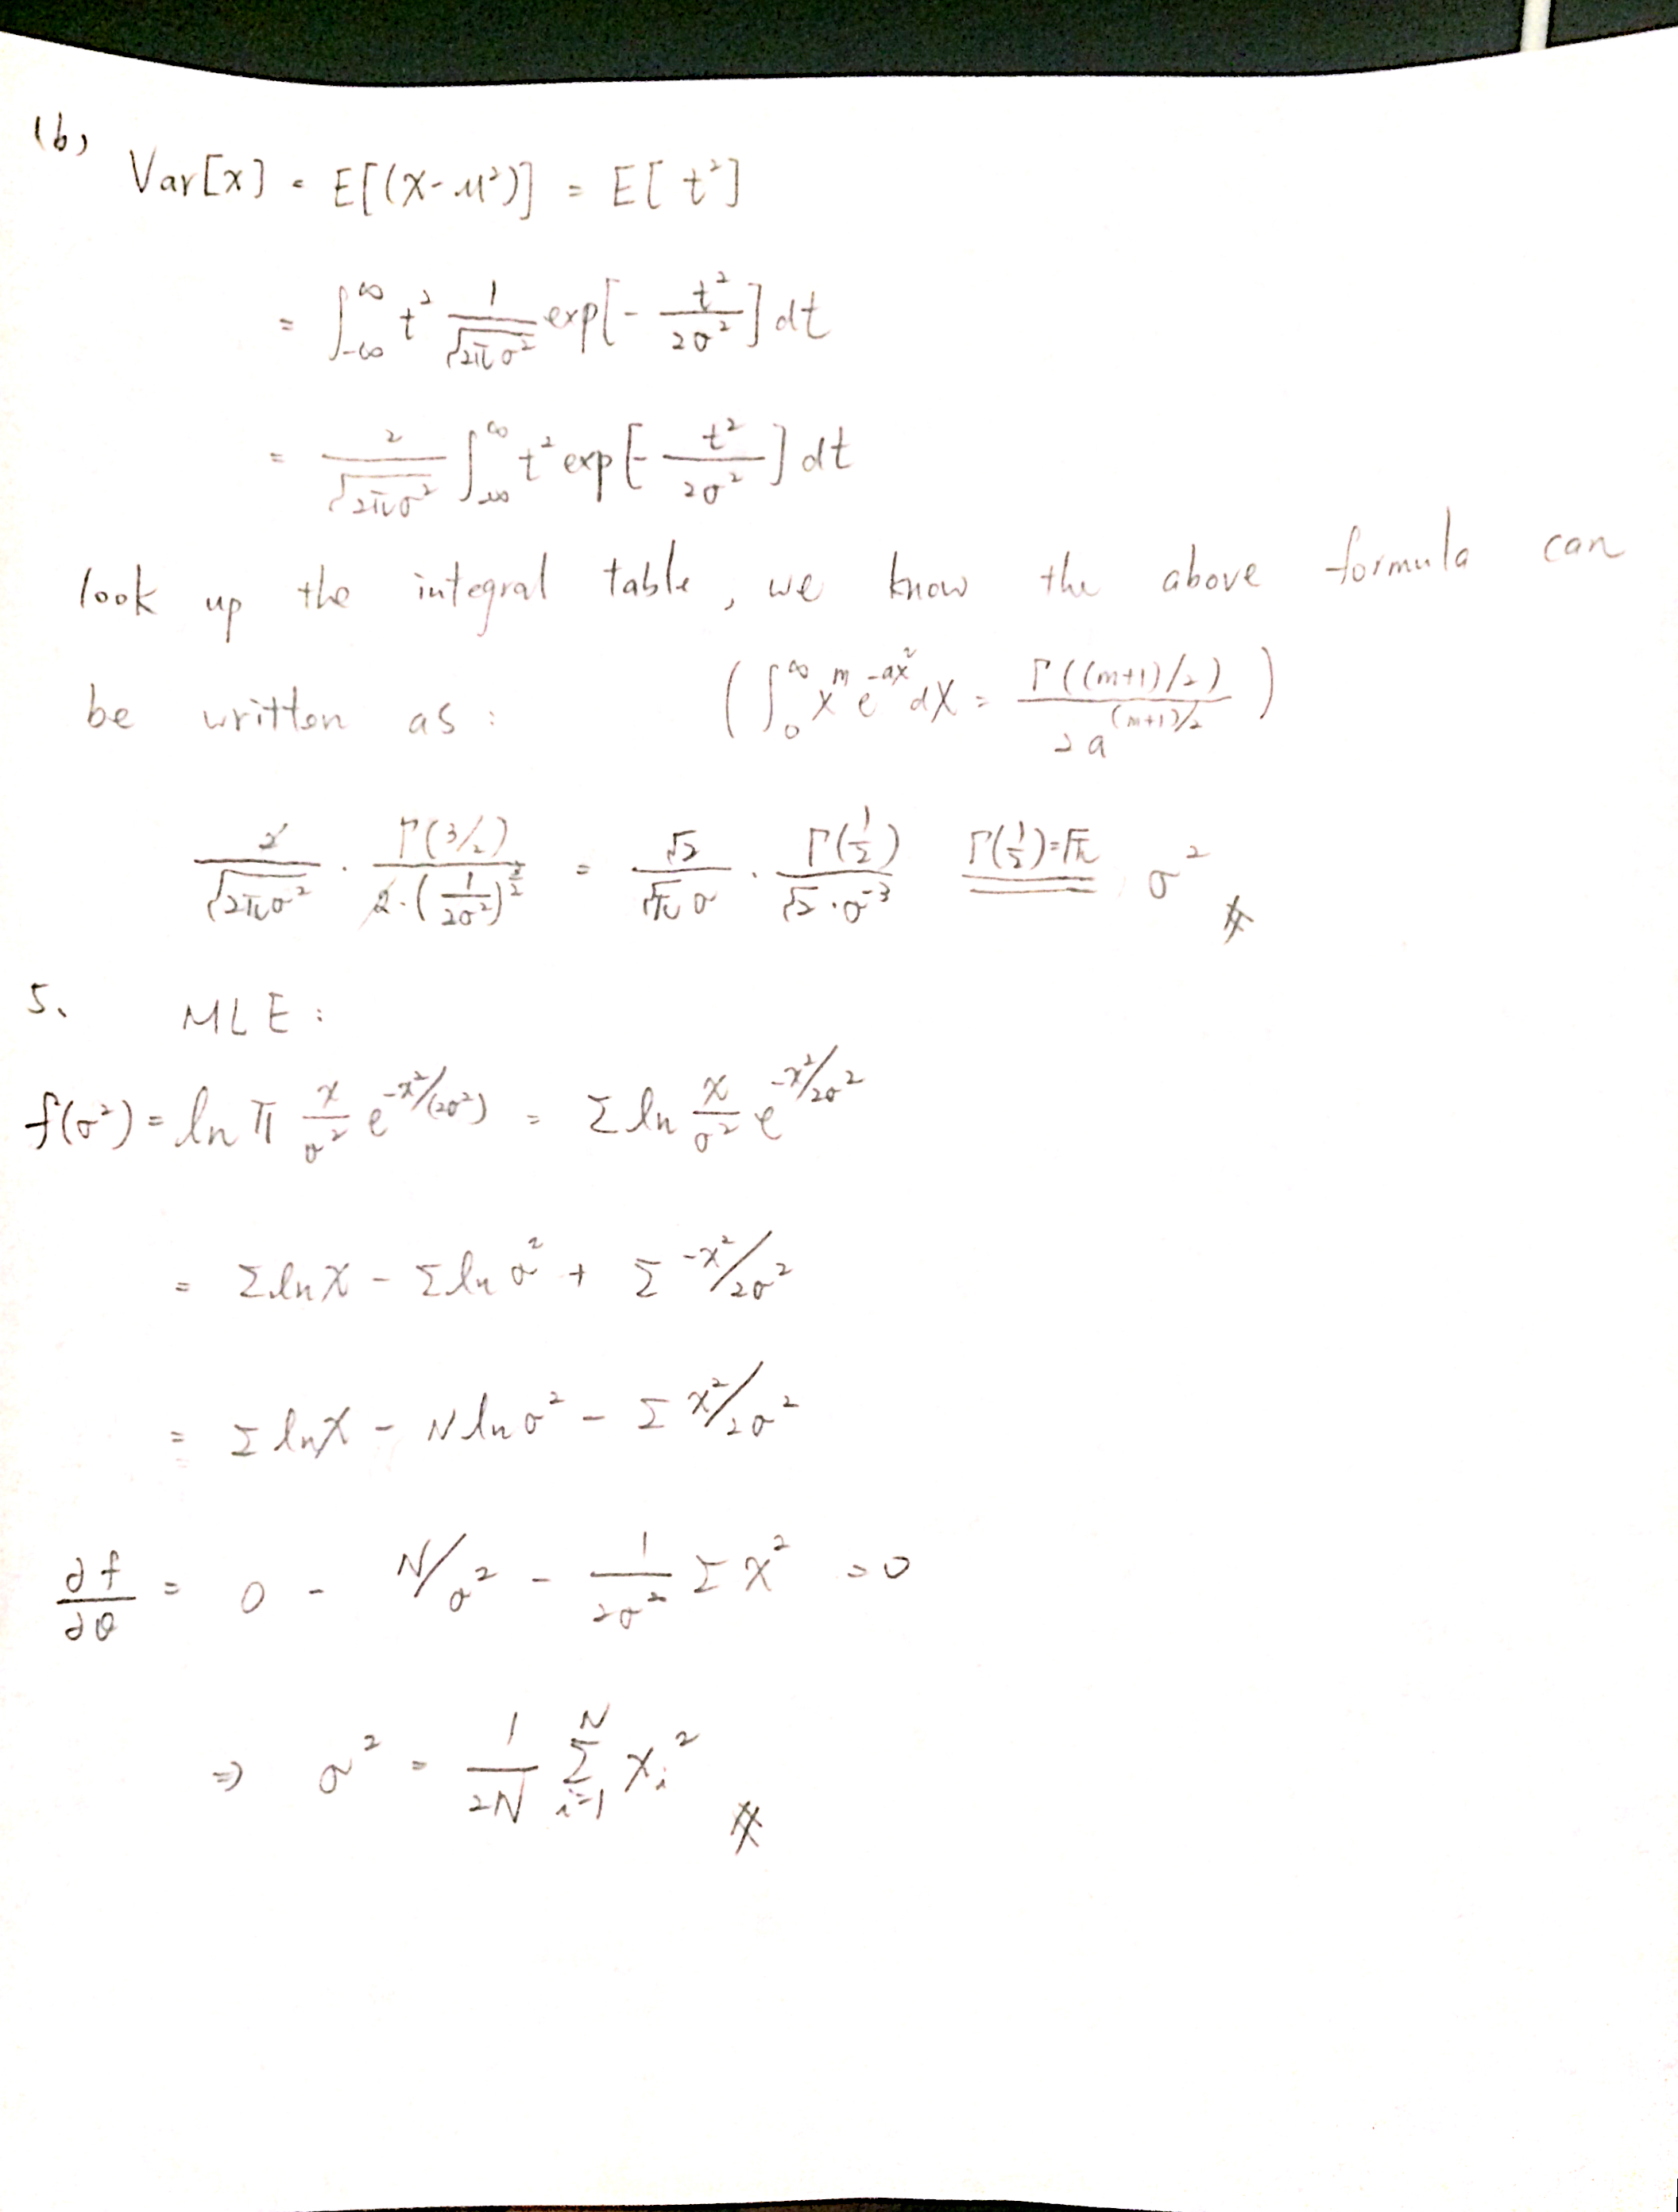 (b)
Var[x] = E[(X-μ²)] = E[t²]
= ∫_{-∞}^{∞} t² 1/√(2πσ²) exp[- t²/2σ²] dt
= 2/√(2πσ²) ∫_{-∞}^{∞} t² exp[- t²/2σ²] dt
look up the integral table, we know the above formula can
be written as: ( ∫_0^∞ x^m e^{-ax²} dX = Γ((m+1)/2) / 2a^{(m+1)/2} )
2/√(2πσ²) · Γ(3/2) / 2·(1/2σ²)^{3/2} = √2/√π σ · Γ(1/2) / √2·σ^{-3} Γ(1/2)=√π σ² #
5、 MLE:
f(σ²) = ln π x/σ² e^{-x²/(2σ²)} = Σ ln x/σ² e^{-x²/2σ²}
= Σ ln x - Σ ln σ² + Σ -x²/2σ²
= Σ ln x - N ln σ² - Σ x²/2σ²
∂f/∂θ = 0 - N/σ² - 1/2σ² Σ x² = 0
⇒ σ² = 1/2N Σ_{i=1}^{N} x_i² #